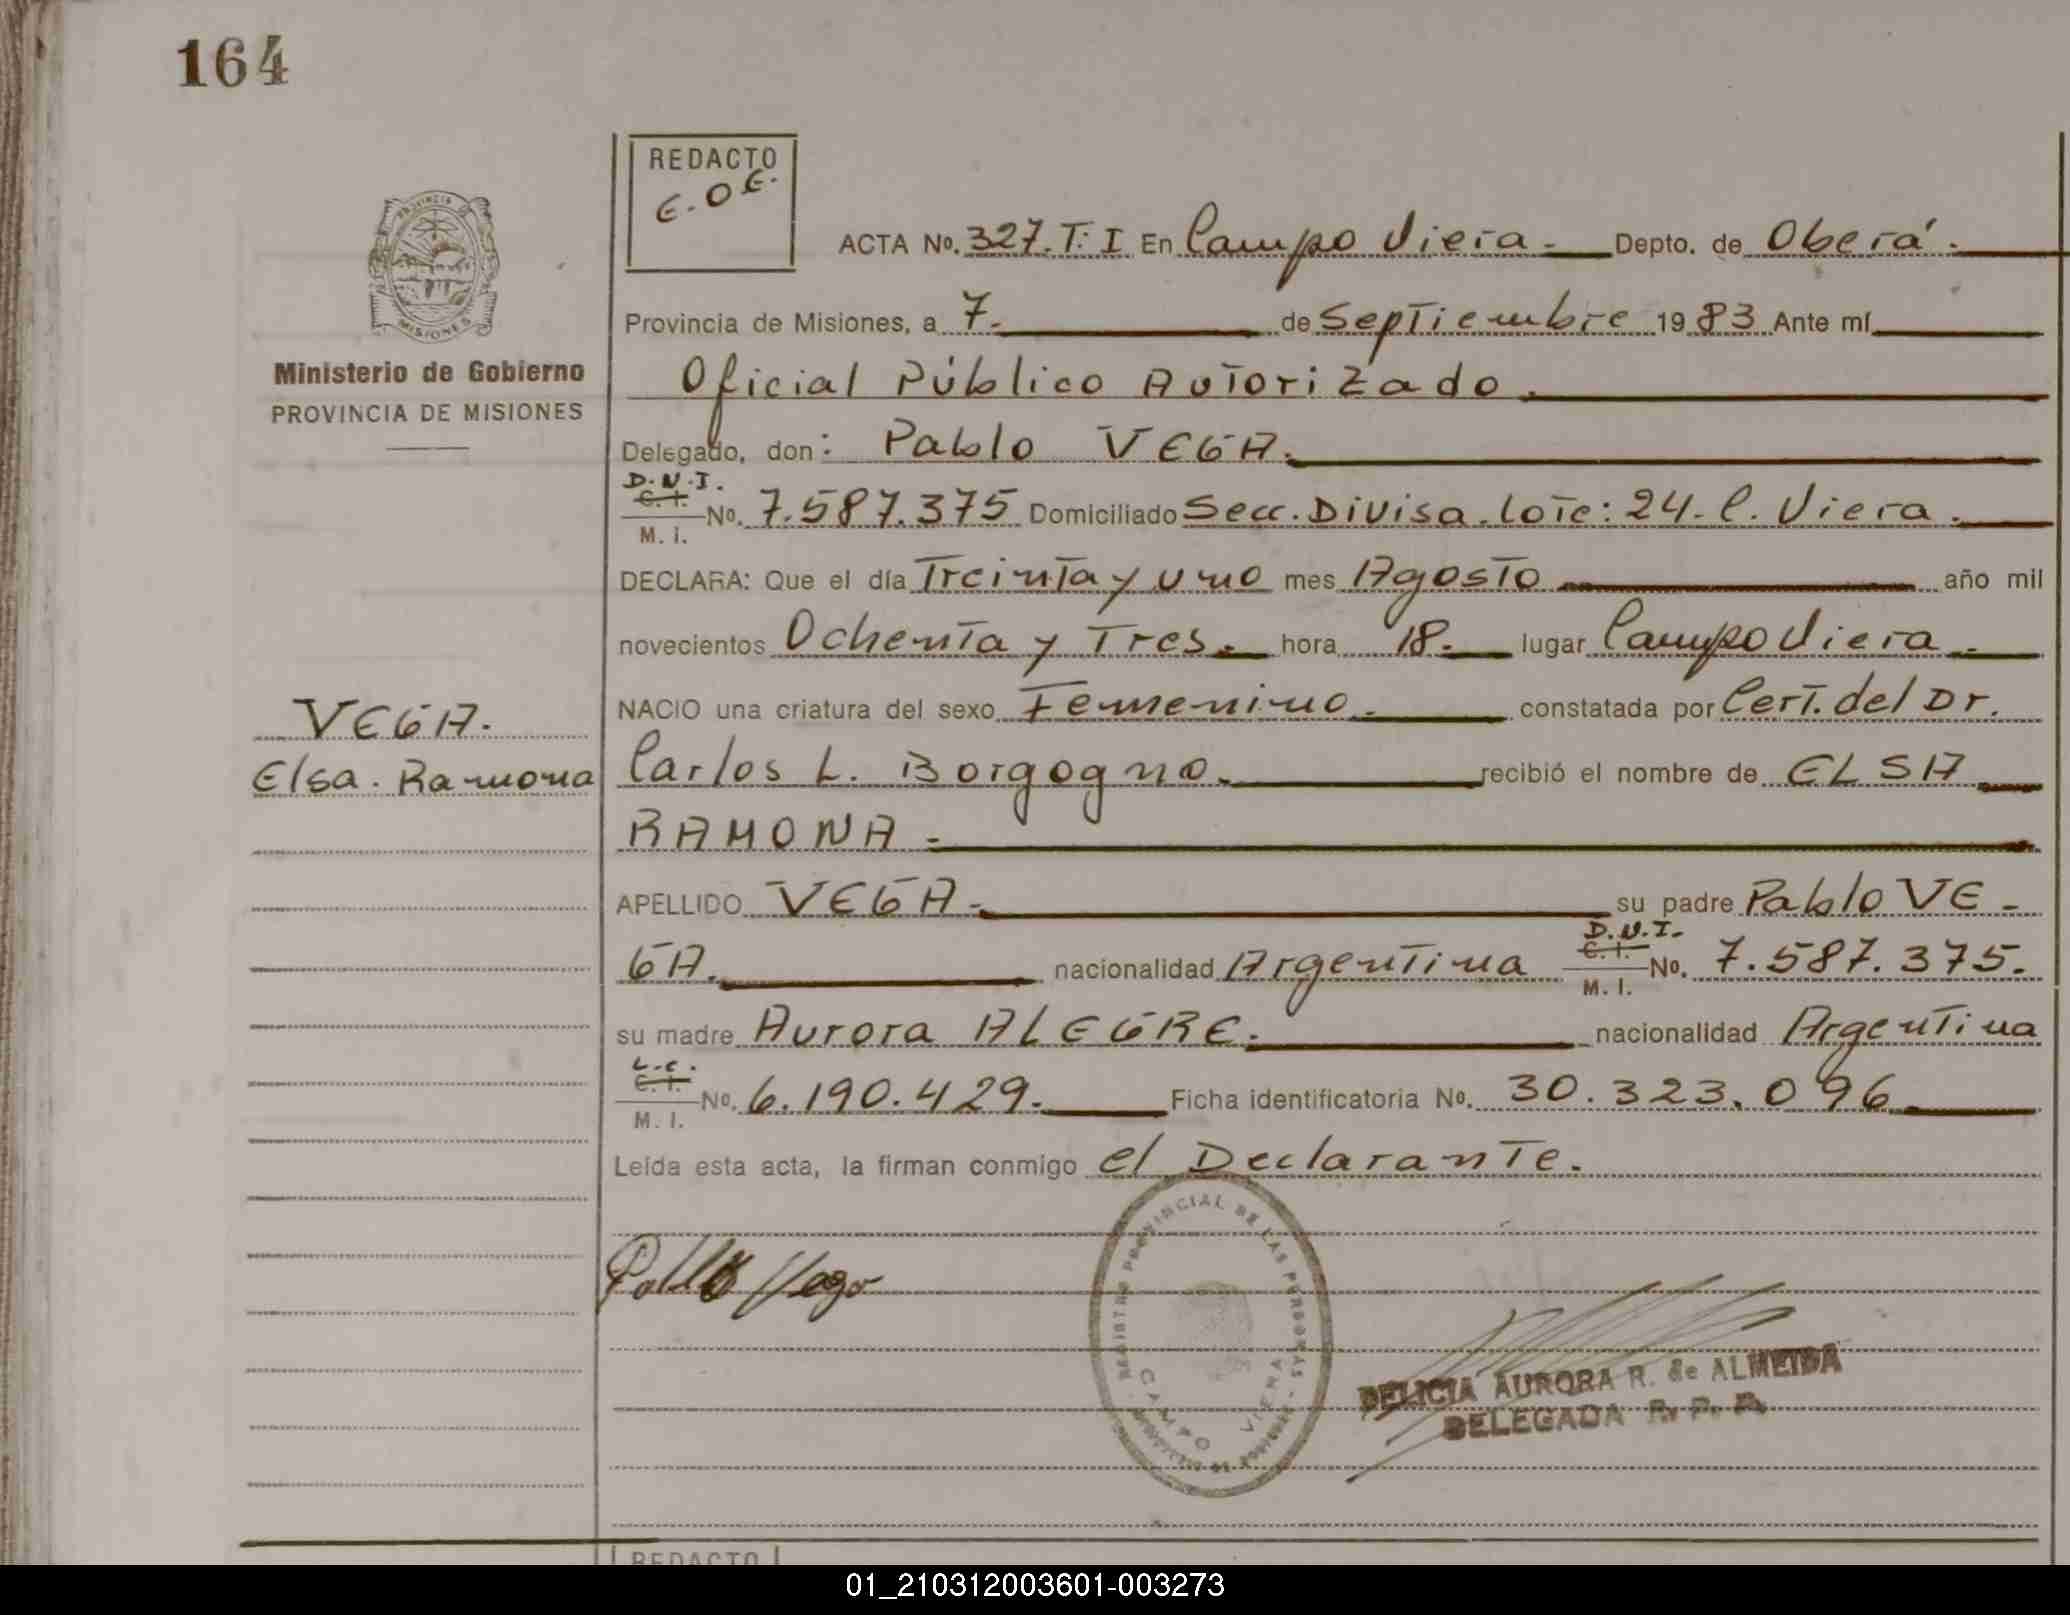 164
REDACTO
E.O.E.
ACTA No. 327.T:I En Campo Viera.- Depto. de Oberá.
Provincia de Misiones, a 7. de Septiembre 1983 Ante mí
Oficial Público Autorizado.
Delegado, don: Pablo VEGA.
D.N.I.
C. I.
No. 7.587.375 Domiciliado Secc. Divisa. Lote: 24. C. Viera.
M. I.
DECLARA: Que el día Treinta y uno mes Agosto año mil
novecientos Ochenta y Tres. hora 18. lugar Campo Viera.
NACIO una criatura del sexo Femenino. constatada por Cert. del Dr.
Carlos L. Borgogno. recibió el nombre de ELSA
RAMONA.
APELLIDO VEGA. su padre Pablo VE-
D.N.I.
C. I.
GA. nacionalidad Argentina No. 7.587.375.
M. I.
su madre Aurora ALEGRE. nacionalidad Argentina
L.C.
C. I.
No. 6.190.429. Ficha identificatoria No. 30.323.096
M. I.
Leída esta acta, la firman conmigo el Declarante.
Pablo Vega
REGISTRO PROVINCIAL DE LAS PERSONAS
CAMPO VIERA
DELICIA AURORA R. de ALMEIDA
DELEGADA R. P. P.
PROVINCIA DE
MISIONES
Ministerio de Gobierno
PROVINCIA DE MISIONES
VEGA.
Elsa. Ramona
REDACTO
01_210312003601-003273